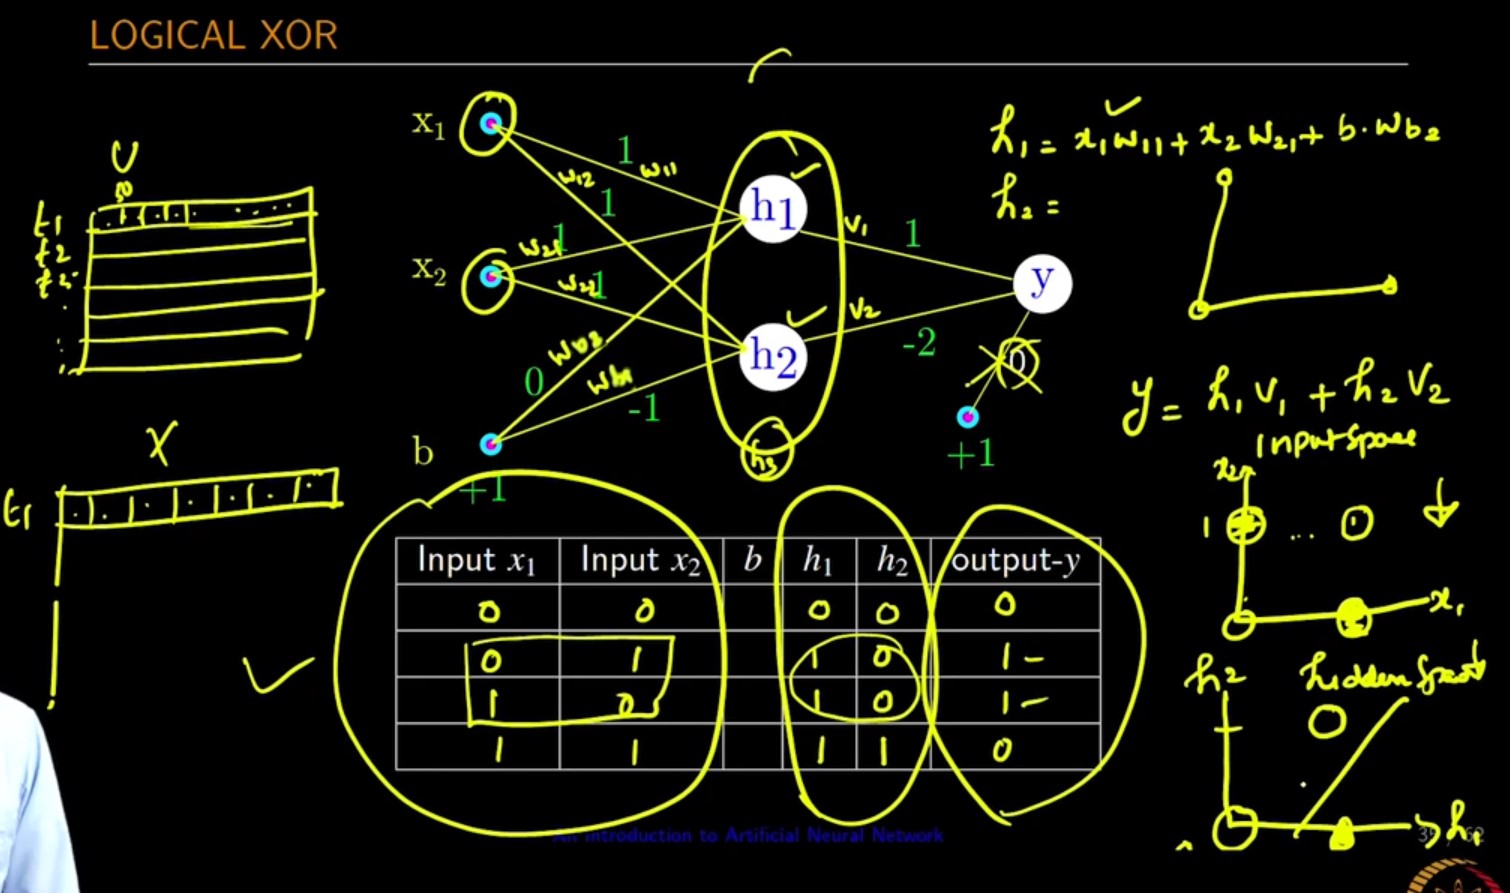 LOGICAL XOR
U
t1
t2
X
t1
x1
x2
b
+1
1 w11
w12 1
w21 1
w22 1
0
-1
h1
h2
h3
v1 1
v2
-2
y
0
+1
h1 = x1w11 + x2w21 + b.wb2
h2 =
y = h1v1 + h2v2
Input space
x2
1
x1
h2 hidden space
h1
Input x1 Input x2 b h1 h2 output-y
0 0 0 0 0
0 1 1 0 1 -
1 0 1 0 1 -
1 1 1 1 0
An Introduction to Artificial Neural Network